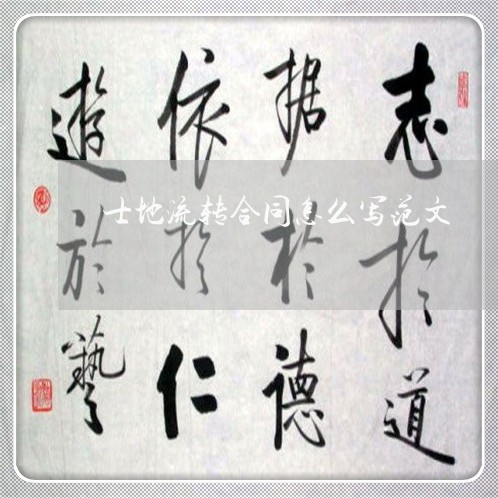 志於道
据於德
依於仁
遊於藝
土地流转合同怎么写范文